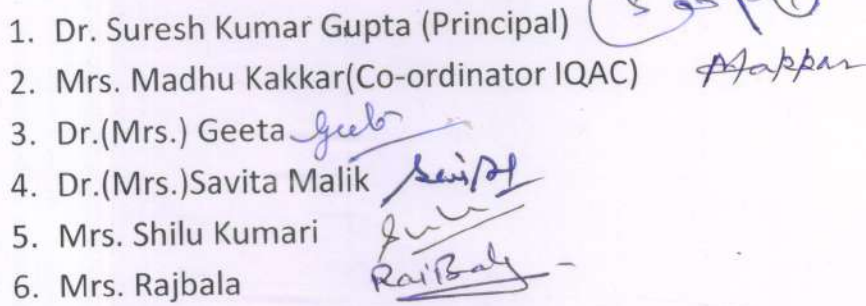 1. Dr. Suresh Kumar Gupta (Principal)
2. Mrs. Madhu Kakkar(Co-ordinator IQAC)
3. Dr.(Mrs.) Geeta Geeta
4. Dr.(Mrs.)Savita Malik
5. Mrs. Shilu Kumari
6. Mrs. Rajbala RajBala